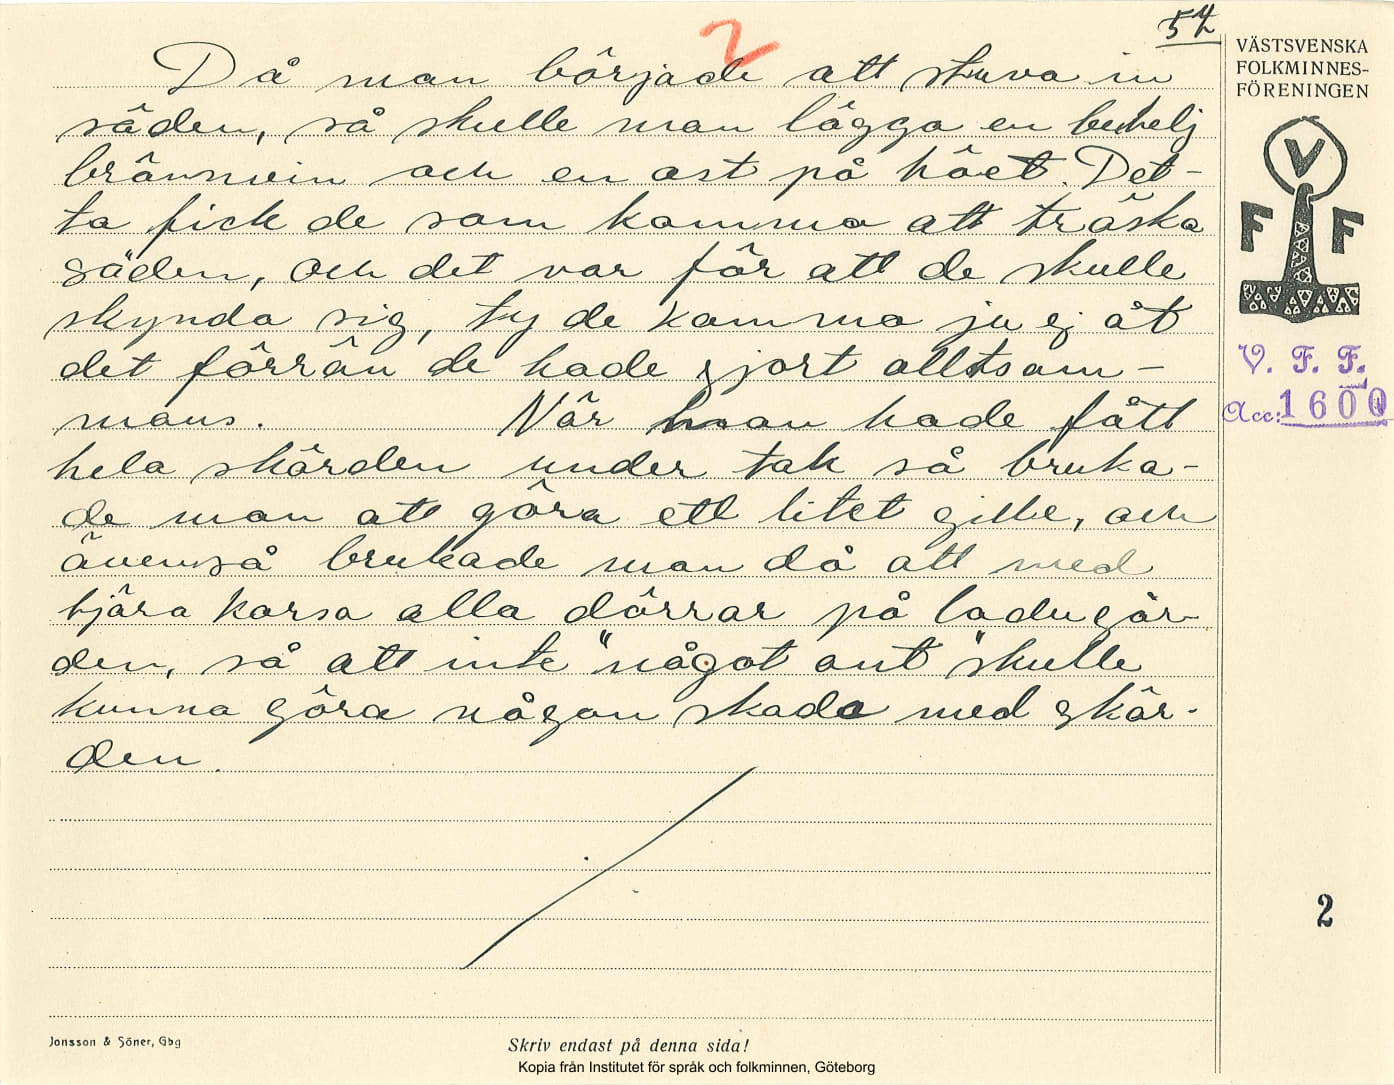 57
2
Då man började att stuva in
säden, så skulle man lägga en butelj
brännvin och en ost på höet. Det-
ta fick de som kommo att tröska
säden, och det var för att de skulle
skynda sig, ty de kommo ju ej åt
det förrän de hade gjort alltsam-
mans. När man hade fått
hela skörden under tak så bruka-
de man att göra ett litet gille, och
ävenså brukade man då att med
tjära korsa alla dörrar på ladugår-
den, så att inte "något ont" skulle
kunna göra någon skada med skör-
den.
VÄSTSVENSKA
FOLKMINNES-
FÖRENINGEN
V
F F
V. F. F.
Acc: 1600
2
Jonsson & Söner, Gbg
Skriv endast på denna sida!
Kopia från Institutet för språk och folkminnen, Göteborg